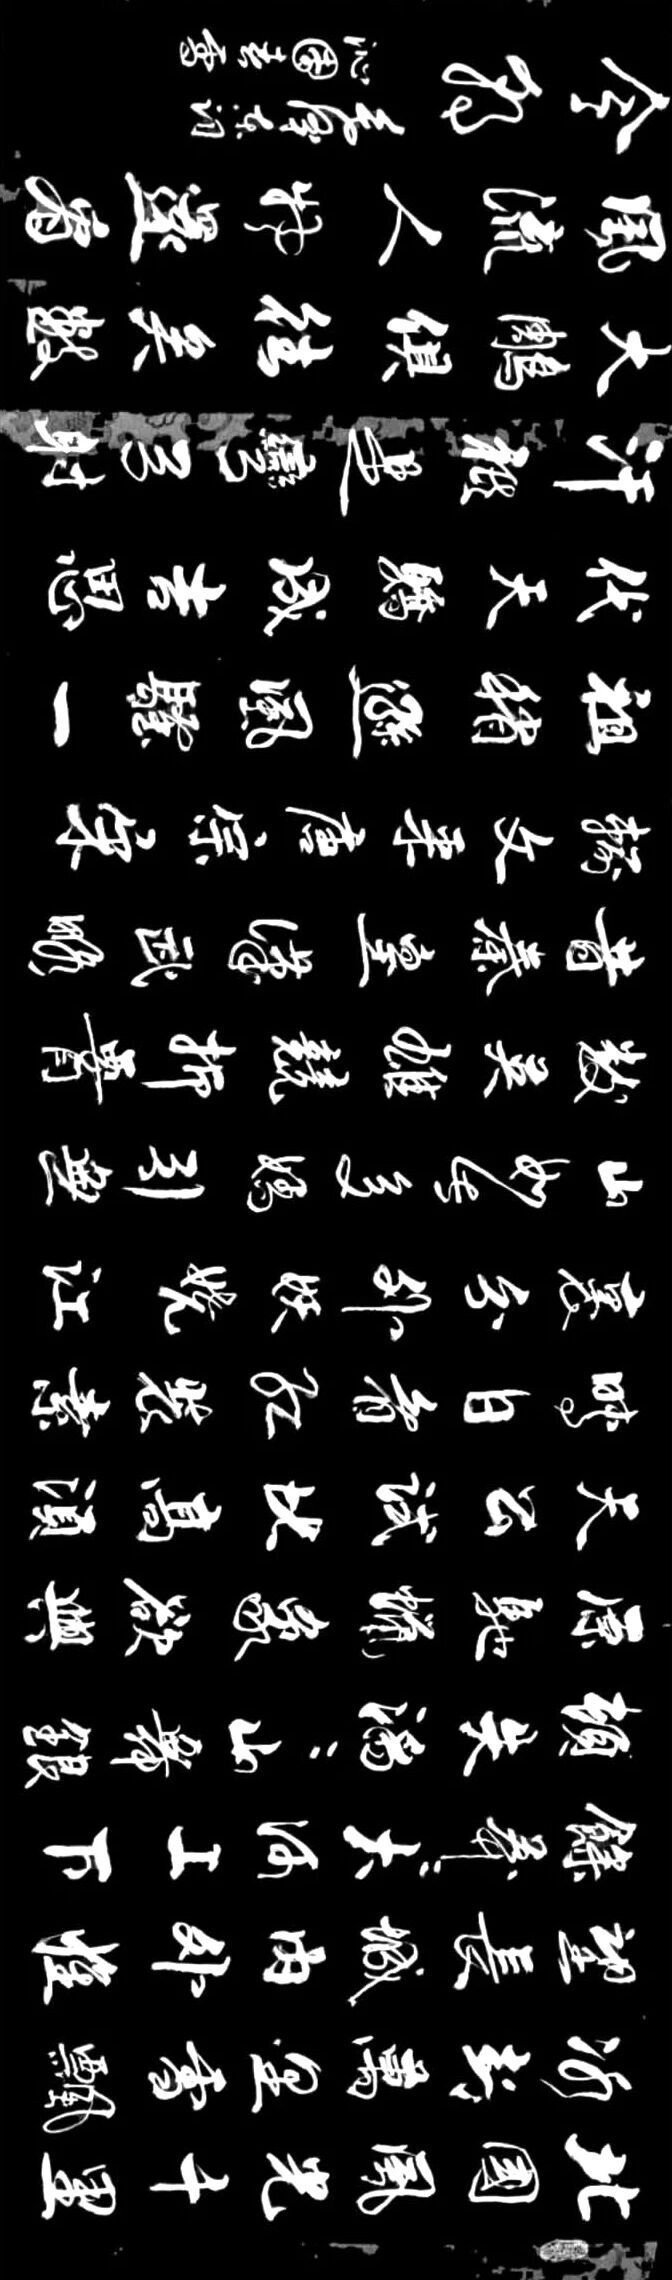 北國風光千里
冰封萬里雪飄
望長城内外惟
餘莽〻大河上下
頓失滔〻山舞銀
原馳蠟象欲與
天公試比高須
晴日看紅裝素
裹分外妖嬈江
山如此多嬌引無
數英雄競折腰
惜秦皇漢武略
輸文采唐宗宋
祖稍遜風騷一
代天驕成吉思
汗祇是彎弓射
大鵰俱往矣數
風流人物還看
今朝
沁園春雪
毛澤東詞